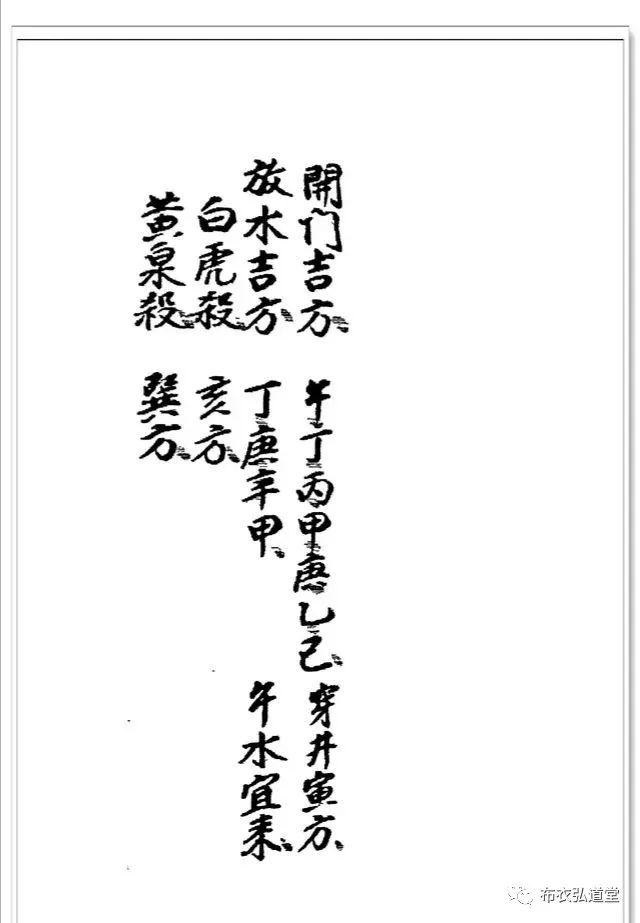 開门吉方 午丁丙甲庚乙己 穿井寅方
放水吉方 丁庚辛甲 午水宜来
白虎殺 亥方
黄泉殺 巽方
布衣弘道堂